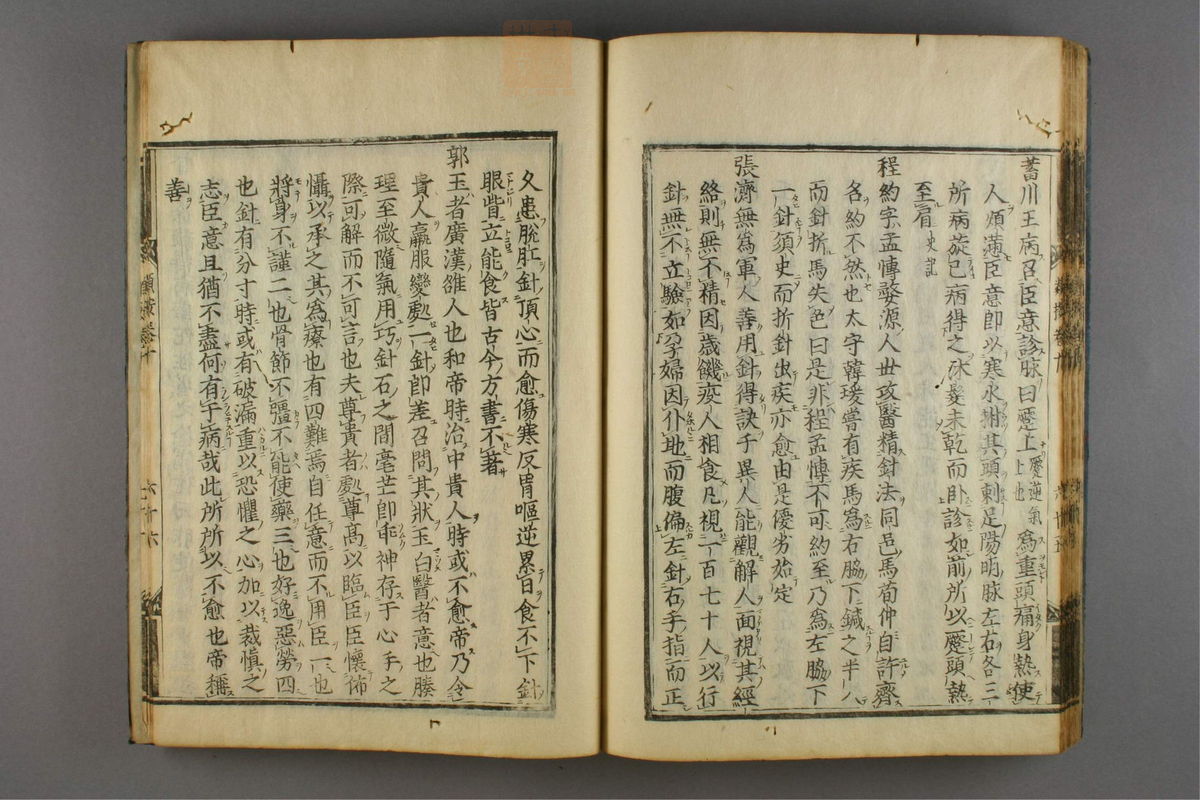 菑川王病召臣意診脉曰蹷上蹷逆氣上也為重頭痛身熱使
人煩懣臣意即以寒水拊其頭刺足陽明脉左右各三
所病旋已病得之沐髮未乾而卧診如前所以蹷頭熱
至肩史記
程約字孟博婺源人世攻醫精針法同邑馬荀仲自許齊
名約不然也太守韓瑗嘗有疾馬為右脇下鍼之半入
而針折馬失色曰是非程孟博不可約至乃為左脇下
一針須臾而折針出疾亦愈由是優劣始定
張濟無為軍人善用針得訣于異人能觀解人面視其經
絡則無不精因歲饑疫人相食凡視一百七十人以行
針無不立驗如孕婦因仆地而腹偏左針右手指而正
久患脫肛針頂心而愈傷寒反胃嘔逆累日食不下針
眼眥立能食皆古今方書不著
郭玉者廣漢雒人也和帝時治中貴人時或不愈帝乃令
貴人羸服變處一針即差召問其狀玉白醫者意也腠
理至微隨氣用巧針石之間毫芒即乖神存于心手之
際可解而不可言也夫尊貴者處尊高以臨臣臣懷怖
懾以承之其為療也有四難焉自任意而不用臣一也
將身不謹二也骨節不彊不能使藥三也好逸惡勞四
也針有分寸時或有破漏重以恐懼之心加以裁慎之
志臣意且猶不盡何有于病哉此所所以不愈也帝稱
善
六十六